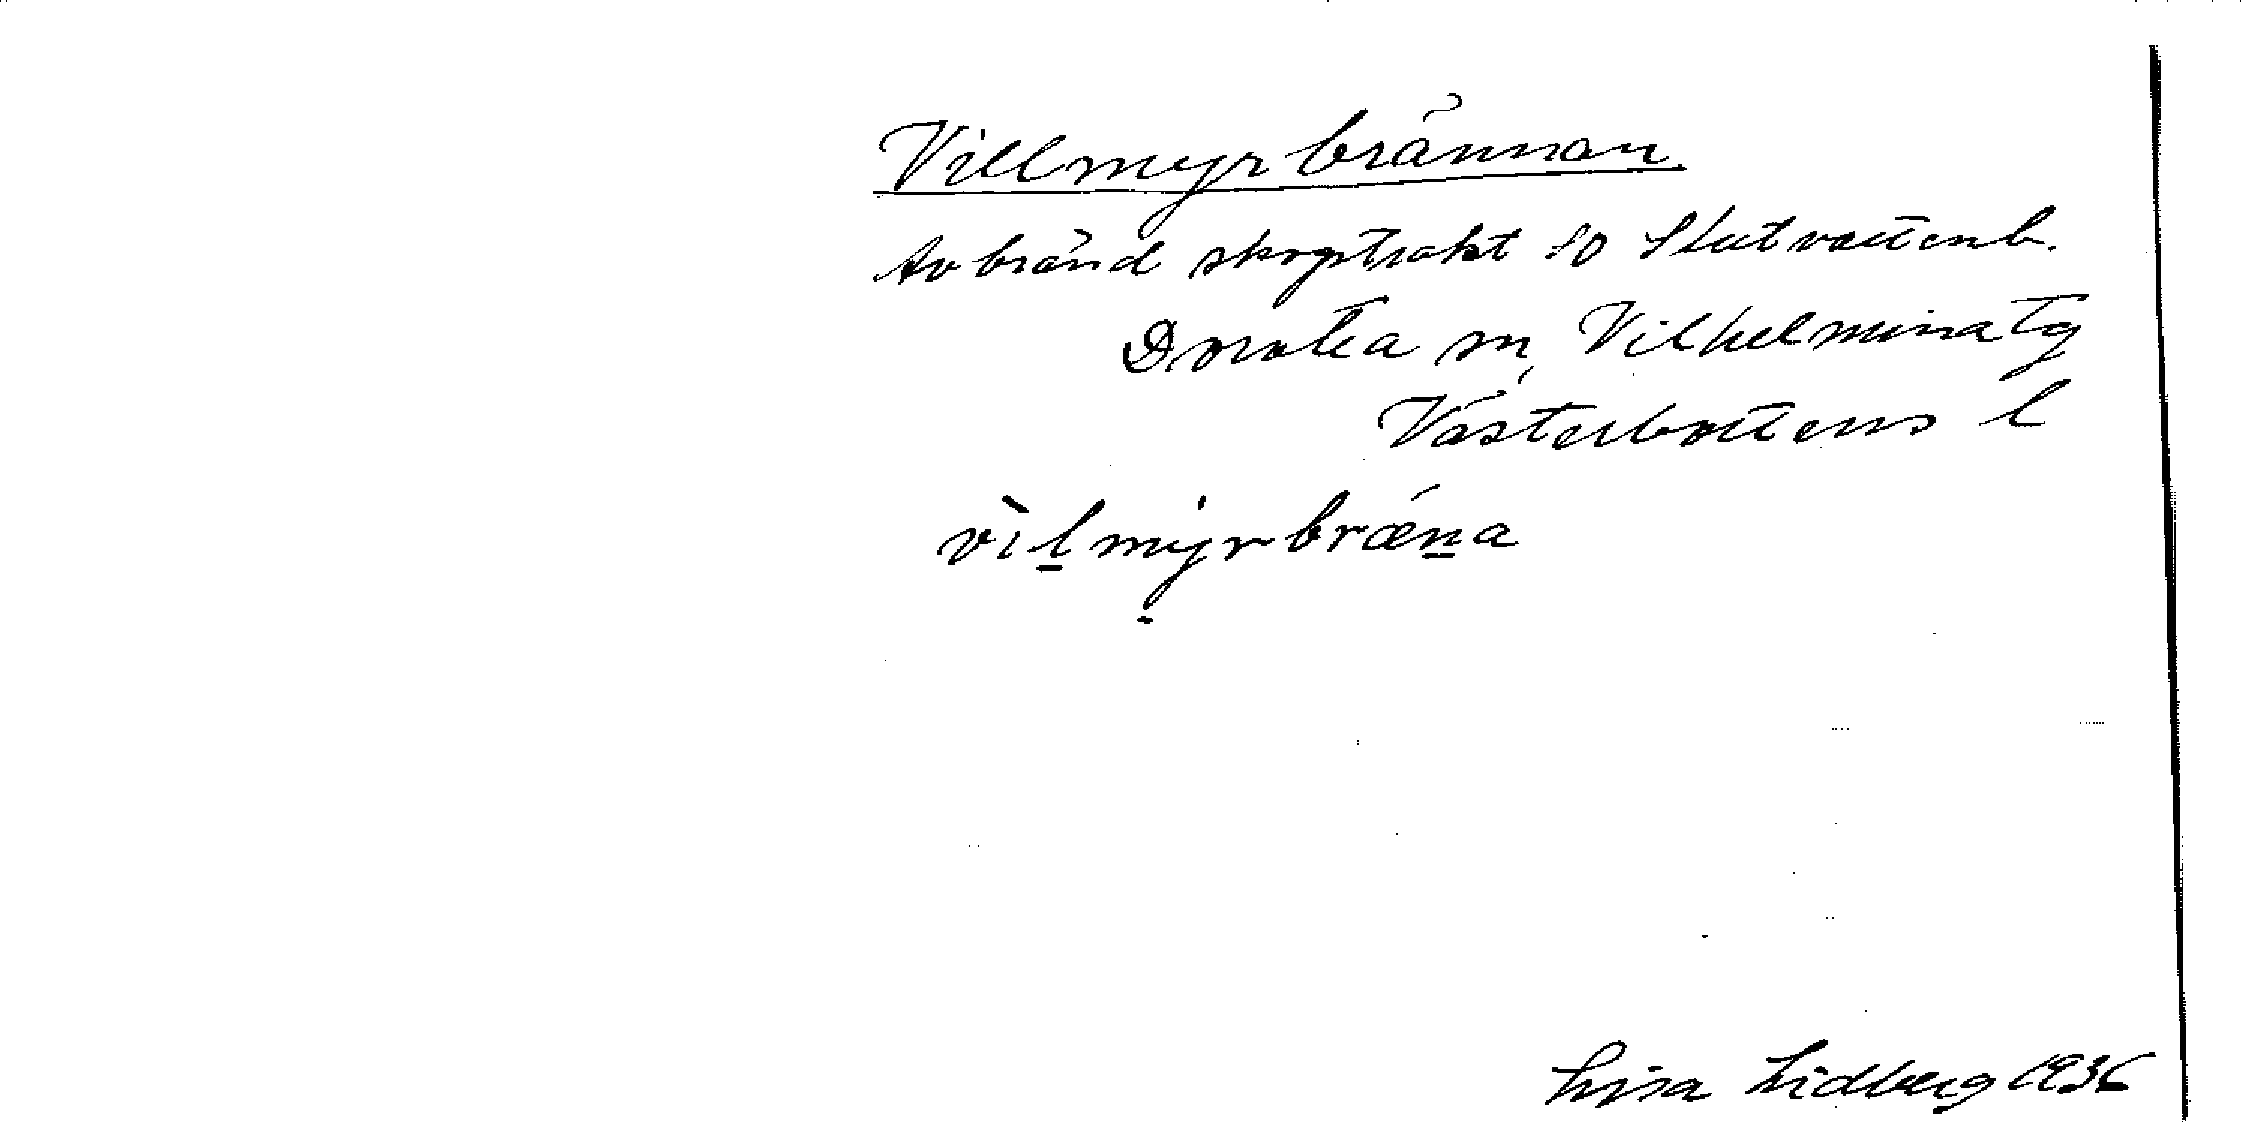 Villmyrbrännan
Avbränd skogstrakt SO Slutvattenb.
Dorotea sn, Vilhelmina tg
Västerbottens l
vìl̲mẏrbræn̲a
Lisa Lidberg 1936